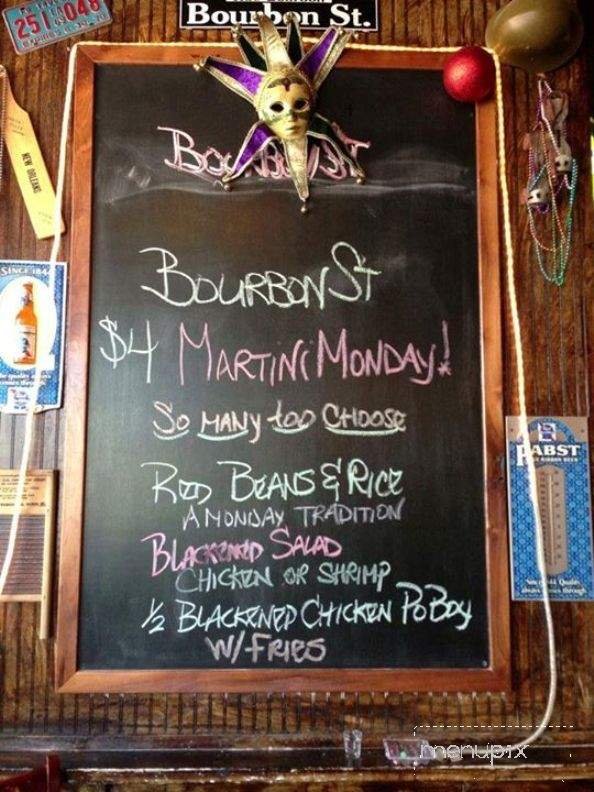 251 048
Bourbon St.
Bourbon St
NEW ORLEANS
SINCE 1844
Bourbon St
$4 Martini Monday!
So many too Choose
Red Beans & Rice
A Monday Tradition
Blackened Salad
Chicken or Shrimp
1/2 Blackened Chicken PoBoy
w/ Fries
PABST
BLUE RIBBON BEER
Since 1844 Quality
always comes through
menupix